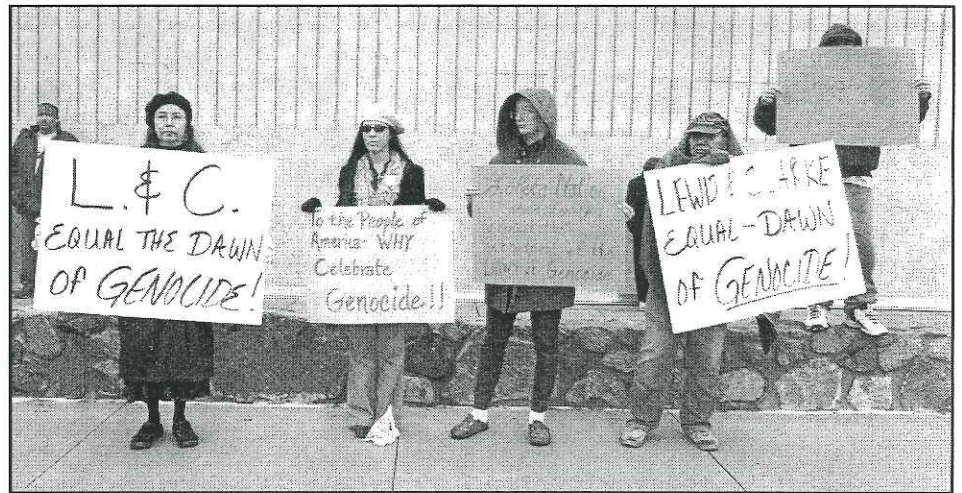 L. & C.
EQUAL THE DAWN
OF GENOCIDE!
To the People of
America- WHY
Celebrate
Genocide!!
the
Dawn of Genocide
LEWIS & CLARKE
EQUAL - DAWN
OF GENOCIDE!